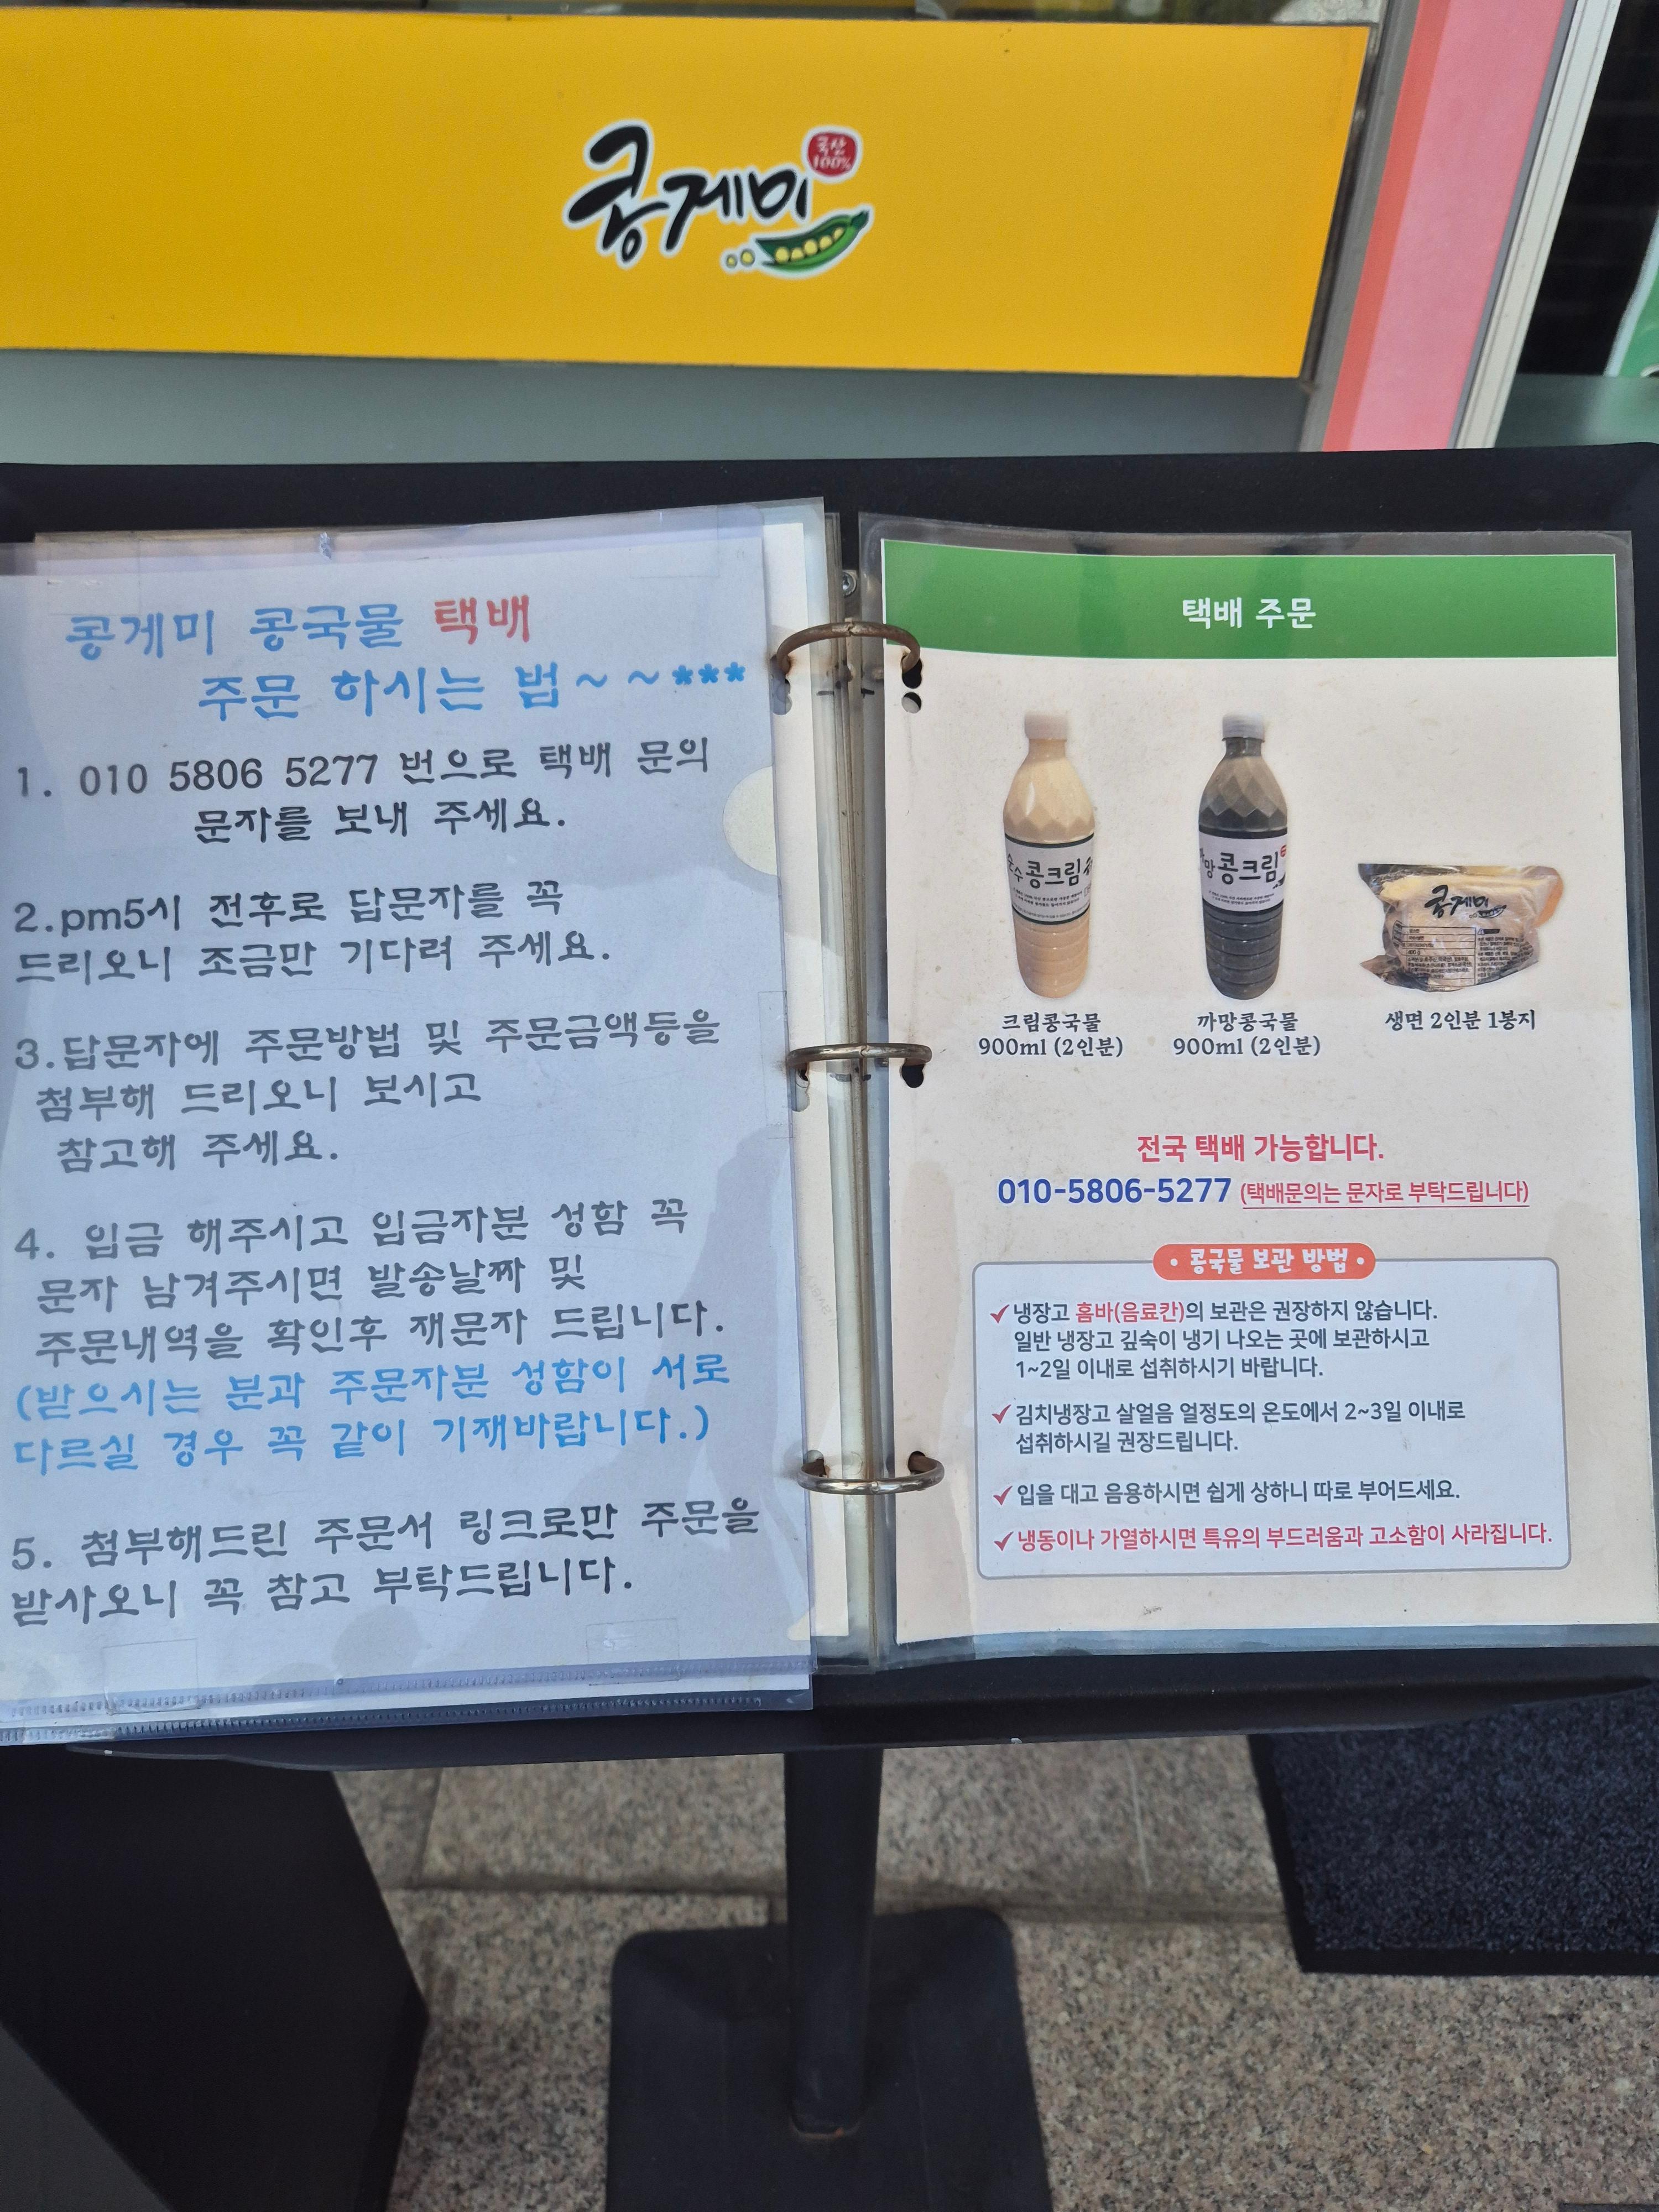 콩게미
국산
100%
콩게미 콩국물 택배
주문 하시는 법~ ~***
1. 010 5806 5277 번으로 택배 문의
문자를 보내 주세요.
2.pm5시 전후로 답문자를 꼭
드리오니 조금만 기다려 주세요.
3.답문자에 주문방법 및 주문금액등을
첨부해 드리오니 보시고
참고해 주세요.
4. 입금 해주시고 입금자분 성함 꼭
문자 남겨주시면 발송날짜 및
주문내역을 확인후 재문자 드립니다.
(받으시는 분과 주문자분 성함이 서로
다르실 경우 꼭 같이 기재바랍니다.)
5. 첨부해드린 주문서 링크로만 주문을
받사오니 꼭 참고 부탁드립니다.
택배 주문
순수 콩크림
망 콩크림
콩게미
크림콩국물
900ml (2인분)
까망콩국물
900ml (2인분)
생면 2인분 1봉지
전국 택배 가능합니다.
010-5806-5277 (택배문의는 문자로 부탁드립니다)
• 콩국물 보관 방법 •
✓냉장고 홈바(음료칸)의 보관은 권장하지 않습니다.
일반 냉장고 깊숙이 냉기 나오는 곳에 보관하시고
1~2일 이내로 섭취하시기 바랍니다.
✓김치냉장고 살얼음 열정도의 온도에서 2~3일 이내로
섭취하시길 권장드립니다.
✓입을 대고 음용하시면 쉽게 상하니 따로 부어드세요.
✓냉동이나 가열하시면 특유의 부드러움과 고소함이 사라집니다.